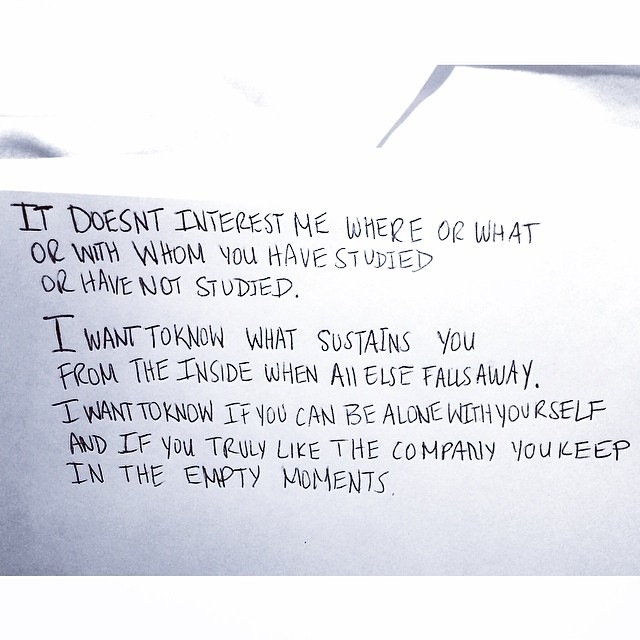 IT DOESNT INTEREST ME WHERE OR WHAT
OR WITH WHOM YOU HAVE STUDIED
OR HAVE NOT STUDIED.
I WANT TO KNOW WHAT SUSTAINS YOU
FROM THE INSIDE WHEN All ELSE FALLS AWAY.
I WANT TO KNOW IF YOU CAN BE ALONE WITH YOURSELF
AND IF YOU TRULY LIKE THE COMPANY YOU KEEP
IN THE EMPTY MOMENTS.